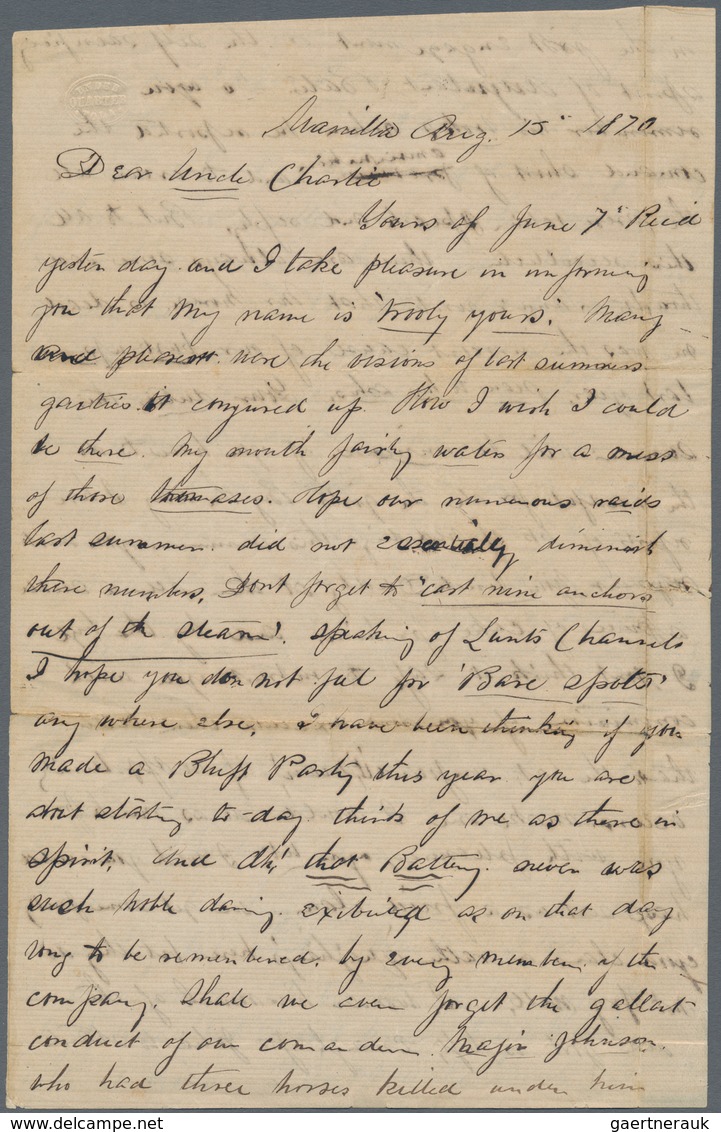 Manilla Aug. 15" 1870
Dear Uncle Charlie
Yours of June 7" Recd
yesterday and I take pleasure in informing
you that my name is 'trooly yours'. Many
and pleasant were the visions of last summers
gaities it conjured up. How I wish I could
be there. My mouth fairly waters for a mess
of those. Hope our numerous raids
last summer did not essentially diminish
there numbers. Dont forget to "cast nine anchors
out of the stearn". Speaking of Lunts Channels
I hope you do not feel for 'Bare spots'
any where else. I have been thinking if you
made a Bluff Party this year you are
about starting to-day think of me as there in
spirit. And Oh! that Battery. never was
such noble daring exibited as on that day
long to be remembered. by every member of the
company. Shall we ever forget the gallant
conduct of our comander Major Johnson.
who had three horses killed under him
gaertnerauk